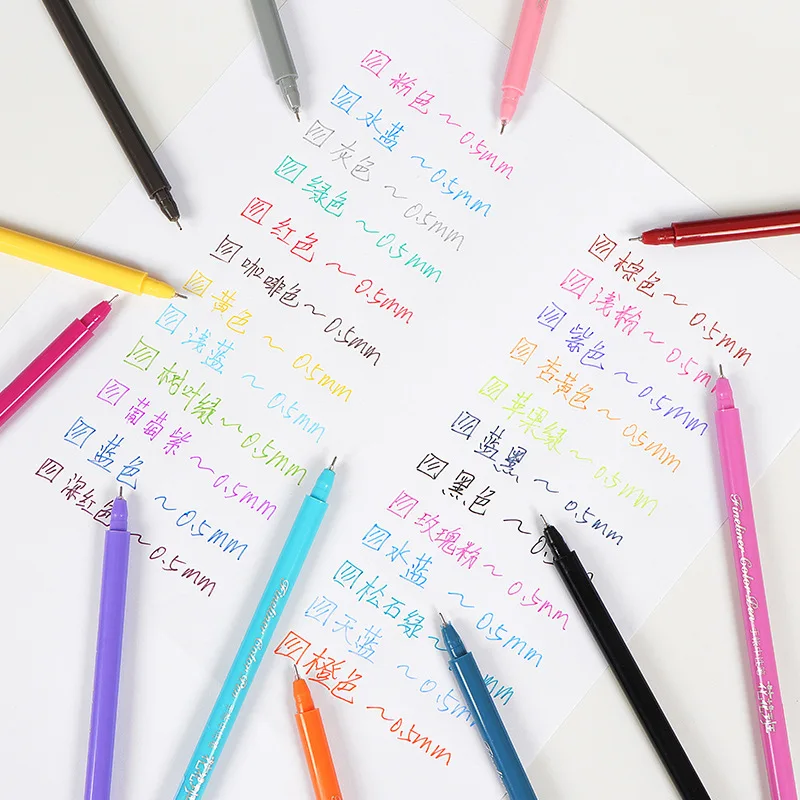 粉色~0.5mm
水蓝~0.5mm
灰色~0.5mm
绿色~0.5mm
红色~0.5mm
咖啡色~0.5mm
黄色~0.5mm
浅蓝~0.5mm
树叶绿~0.5mm
葡萄紫~0.5mm
蓝色~0.5mm
深红色~0.5mm
棕色~0.5mm
浅粉~0.5mm
紫色~0.5mm
杏黄色~0.5mm
苹果绿~0.5mm
蓝黑~0.5mm
黑色~0.5
玫瑰粉~0.5mm
水蓝~0.5mm
松石绿~0.5mm
天蓝~0.5mm
橙色~0.5mm
Fineliner Color Pen
Fineliner Color Pen